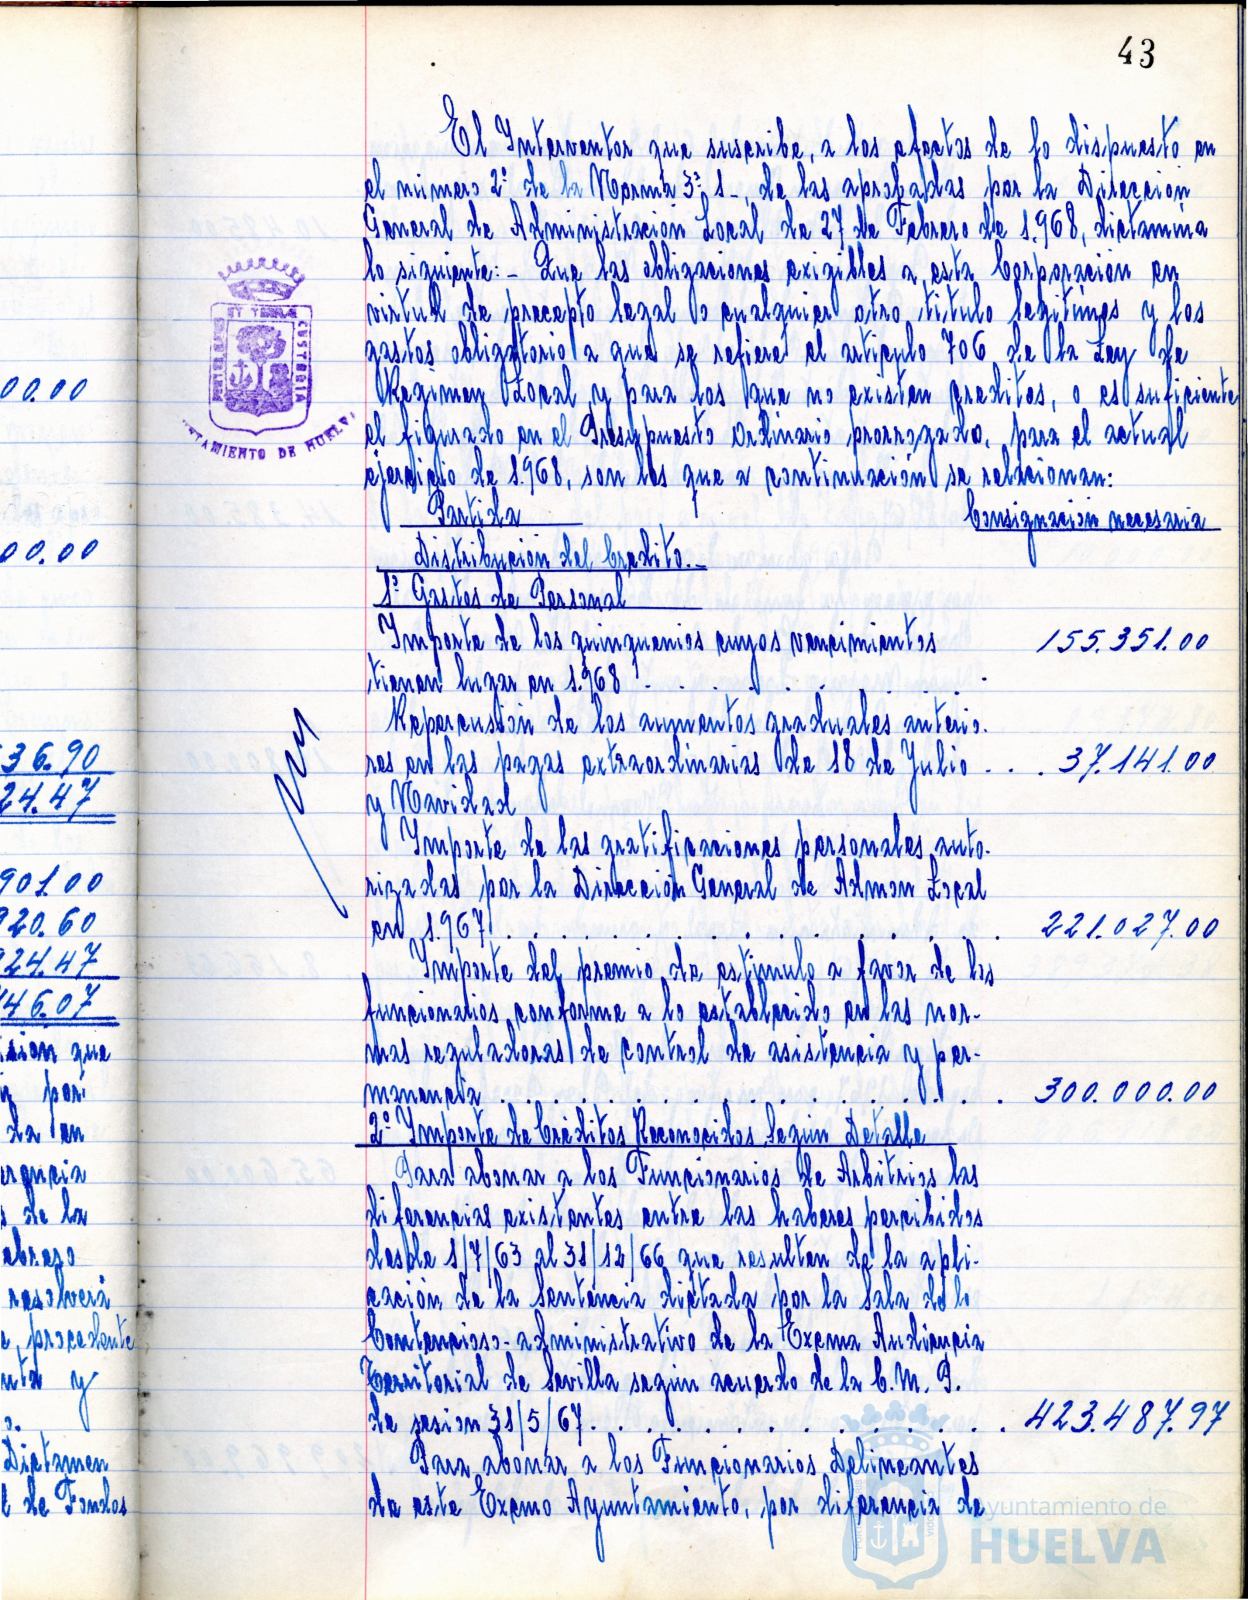 43
El Interventor que suscribe, a los efectos de lo dispuesto en
el número 2º de la Norma 3ª 1-, de las aprobadas por la Dirección
General de Administración Local de 27 de Febrero de 1.968, dictamina
lo siguiente:- Que las obligaciones exigibles a esta Corporación en
virtud de precepto legal o cualquier otro titulo legitimos y los
gastos obligatorio a que se refiere el articulo 706 de la Ley de
Regimen Local y para los que no existen creditos, o es suficiente
el figurado en el Presupuesto Ordinario prorrogado, para el actual
ejercicio de 1.968, son los que a continuación se relacionan:
Partida Consignación necesaria
Distribución del Credito.-
1º Gastos de Personal
Importe de los quinquenios cuyos vencimientos 155.351.00
tienen lugar en 1.968
Repercusión de los aumentos graduales anterio-
res en las pagas extraordinarias de 18 de Julio 37.141.00
y Navidad
Importe de las gratificaciones personales auto-
rizadas por la Dirección General de Admon Local
en 1.967 221.027.00
Importe del premio de estimulo a favor de los
funcionarios conforme a lo establecido en las nor-
mas reguladoras de control de asistencia y per-
manencia 300.000.00
2º Importe de Créditos Reconocidos Según Detalle
Para abonar a los Funcionarios de Arbitrios las
diferencias existentes entre las haberes percibidos
desde 1/7/63 al 31/12/66 que resulten de la apli-
cación de la Sentencia dictada por la Sala de lo
Contencioso-administrativo de la Excma Audiencia
Territorial de Sevilla según acuerdo de la C.M.P.
de sesion 31/5/67 423.487.97
Para abonar a los Funcionarios Delineantes
de este Excmo Ayuntamiento, por diferencia de
00.00
00.00
36.90
24.47
901.00
920.60
924.47
46.07
sion que
por
da en
s de la
resolverá
procedente
y
Dictamen
de Fondos
PORTUS MARIS ET TERRAE CUSTODIA
AYUNTAMIENTO DE HUELVA
Ayuntamiento de
HUELVA